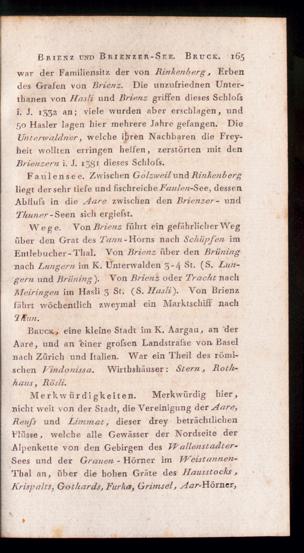 BRIENZ UND BRIENZER-SEE. BRUCK. 165
war der Familiensitz der von Rinkenberg, Erben
des Grafen von Brienz. Die unzufriednen Unter-
thanen von Hasli und Brienz griffen dieses Schloſs
i. J. 1332 an; viele wurden aber erschlagen, und
50 Hasler lagen hier mehrere Jahre gefangen. Die
Unterwaldner, welche ihren Nachbaren die Frey-
heit wollten erringen helfen, zerstörten mit den
Brienzern i. J. 1381 dieses Schloſs.
Faulensee. Zwischen Golzweil und Rinkenberg
liegt der sehr tiefe und fischreiche Faulen-See, dessen
Abfluſs in die Aare zwischen den Brienzer- und
Thuner-Seen sich ergieſst.
Wege. Von Brienz führt ein gefährlicher Weg
über den Grat des Tann-Horns nach Schüpfen im
Entlebucher-Thal. Von Brienz über den Brünig
nach Lungern im K. Unterwalden 3-4 St. (S. Lun-
gern und Brünig). Von Brienz oder Tracht nach
Meiringen im Hasli 3 St. (S. Hasli). Von Brienz
fährt wöchentlich zweymal ein Marktschiff nach
Thun.
BRUCK, eine kleine Stadt im K. Aargau, an der
Aare, und an einer groſsen Landstraſse von Basel
nach Zürich und Italien. War ein Theil des römi-
schen Vindonissa. Wirthshäuser: Stern, Roth-
haus, Rösli.
Merkwürdigkeiten. Merkwürdig hier,
nicht weit von der Stadt, die Vereinigung der Aare,
Reuſs und Limmat, dieser drey beträchtlichen
Flüsse, welche alle Gewässer der Nordseite der
Alpenkette von den Gebirgen des Wallenstadter-
Sees und der Grauen-Hörner im Weistannen-
Thal an, über die hohen Gräte des Hausstocks,
Krispalts, Gothards, Furka, Grimsel, Aar-Hörner,